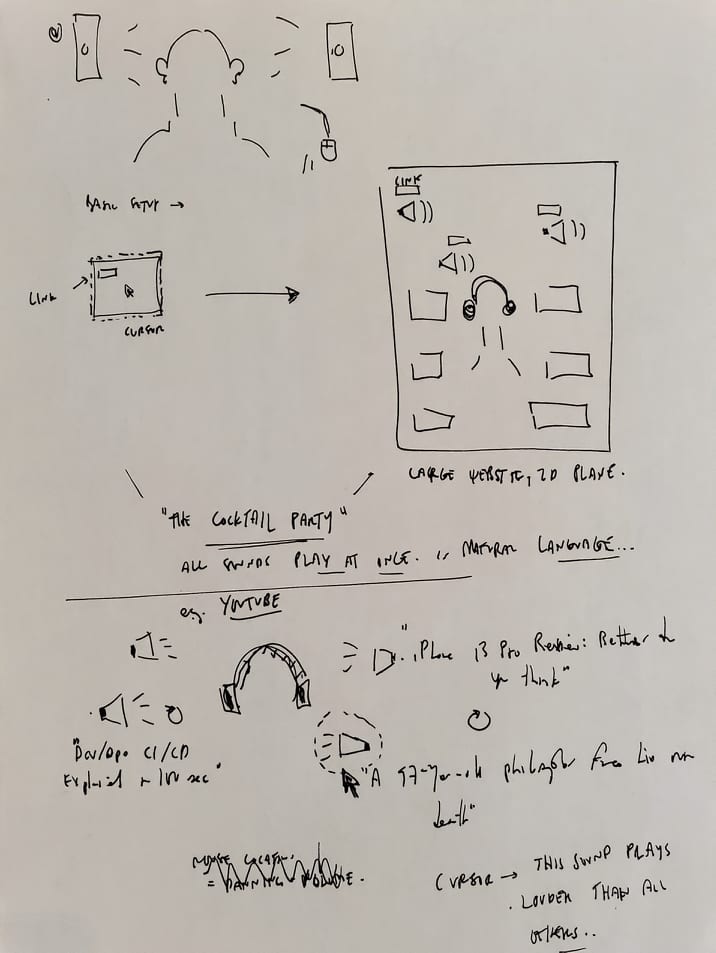 BASIC SETUP →
LINK
CURSOR
LINK
LARGE WEBSITE, 2D PLANE.
"THE COCKTAIL PARTY"
ALL SOUNDS PLAY AT ONCE. IN NATURAL LANGUAGE...
e.g. YOUTUBE
"iPhone 13 Pro Review: Better than
you think"
"Dev/Ops CI/CD
Explained in 100 sec"
"A 97-Year-old philosopher
death"
MOUSE LOCATION
= PANNING VOLUME.
CURSOR → THIS SOUND PLAYS
LOUDER THAN ALL
OTHERS..